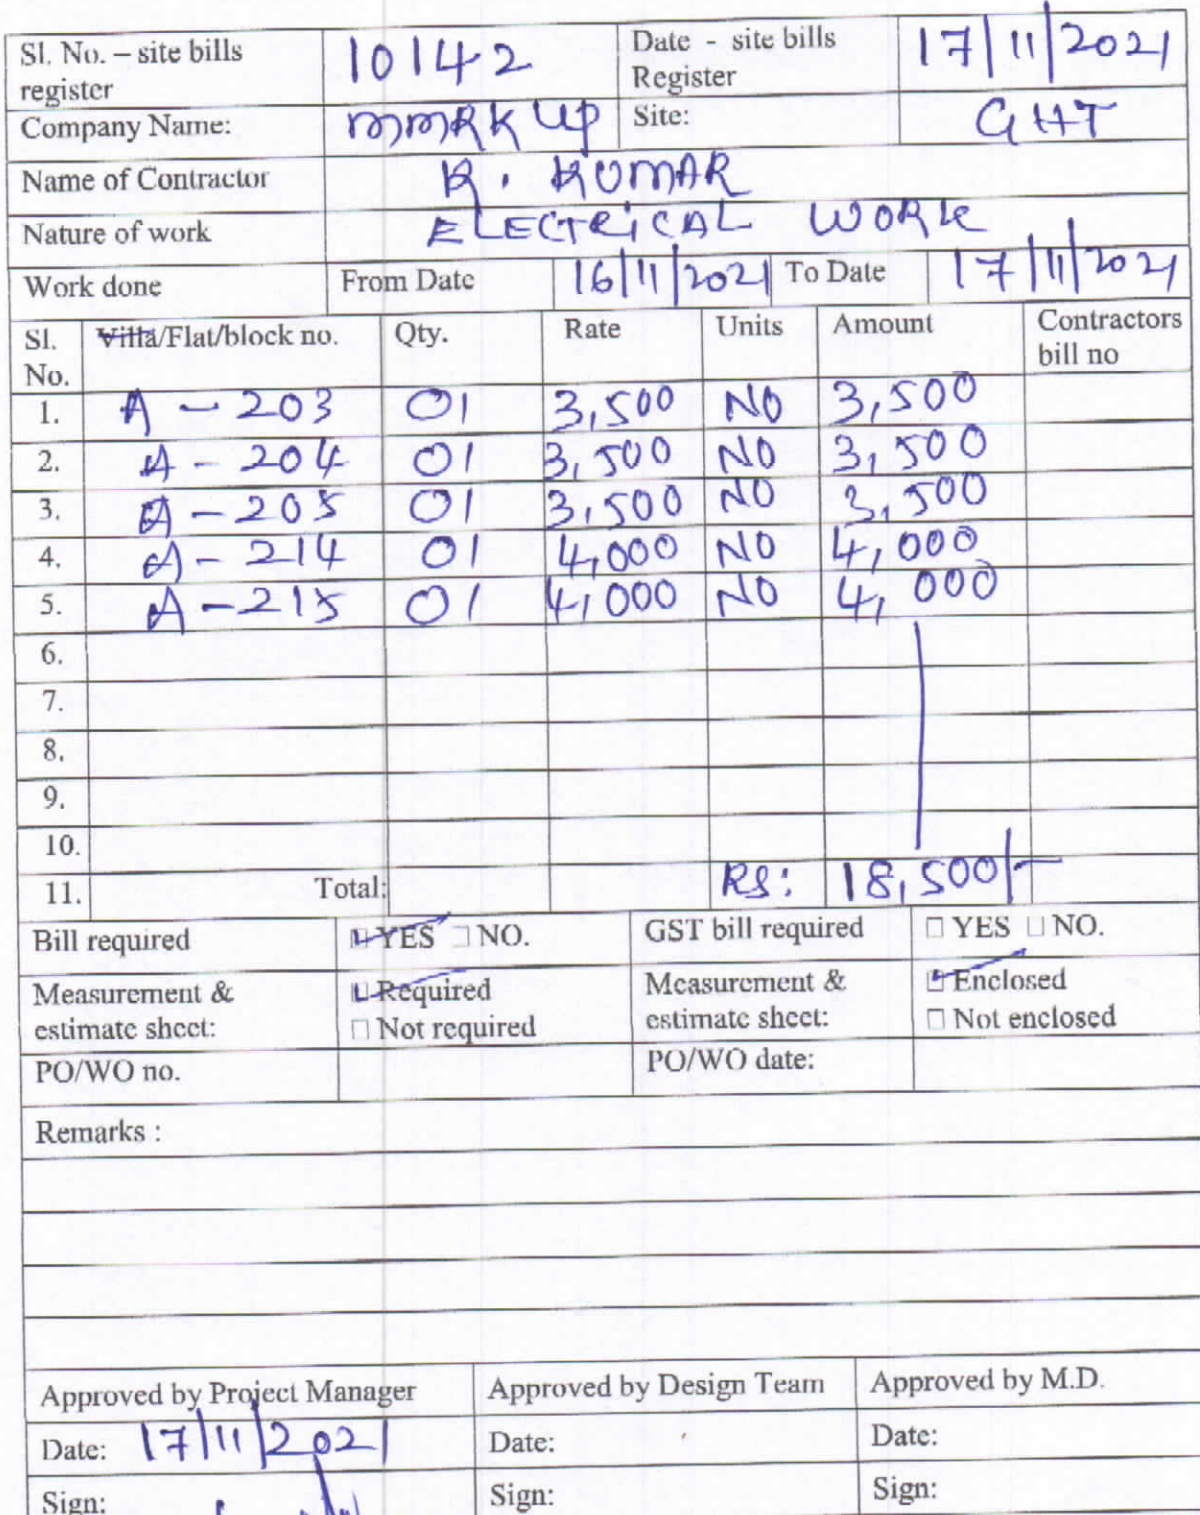 Sl. No. – site bills register 10142 Date - site bills Register 17/11/2021
Company Name: MMRK UP Site: GHT
Name of Contractor R. KUMAR
Nature of work ELECTRiCAL WORK
Work done From Date 16/11/2021 To Date 17/11/2021
Sl. No. Villa/Flat/block no. Qty. Rate Units Amount Contractors bill no
1. A - 203 01 3,500 NO 3,500
2. A - 204 01 3,500 NO 3,500
3. A - 205 01 3,500 NO 3,500
4. A - 214 01 4,000 NO 4,000
5. A - 215 01 4,000 NO 4,000
6.
7.
8.
9.
10.
11. Total: RS: 18,500/-
Bill required YES NO. GST bill required YES NO.
Measurement & estimate sheet: Required Not required Measurement & estimate sheet: Enclosed Not enclosed
PO/WO no. PO/WO date:
Remarks :
Approved by Project Manager Approved by Design Team Approved by M.D.
Date: 17/11/2021 Date: Date:
Sign: Sign: Sign: